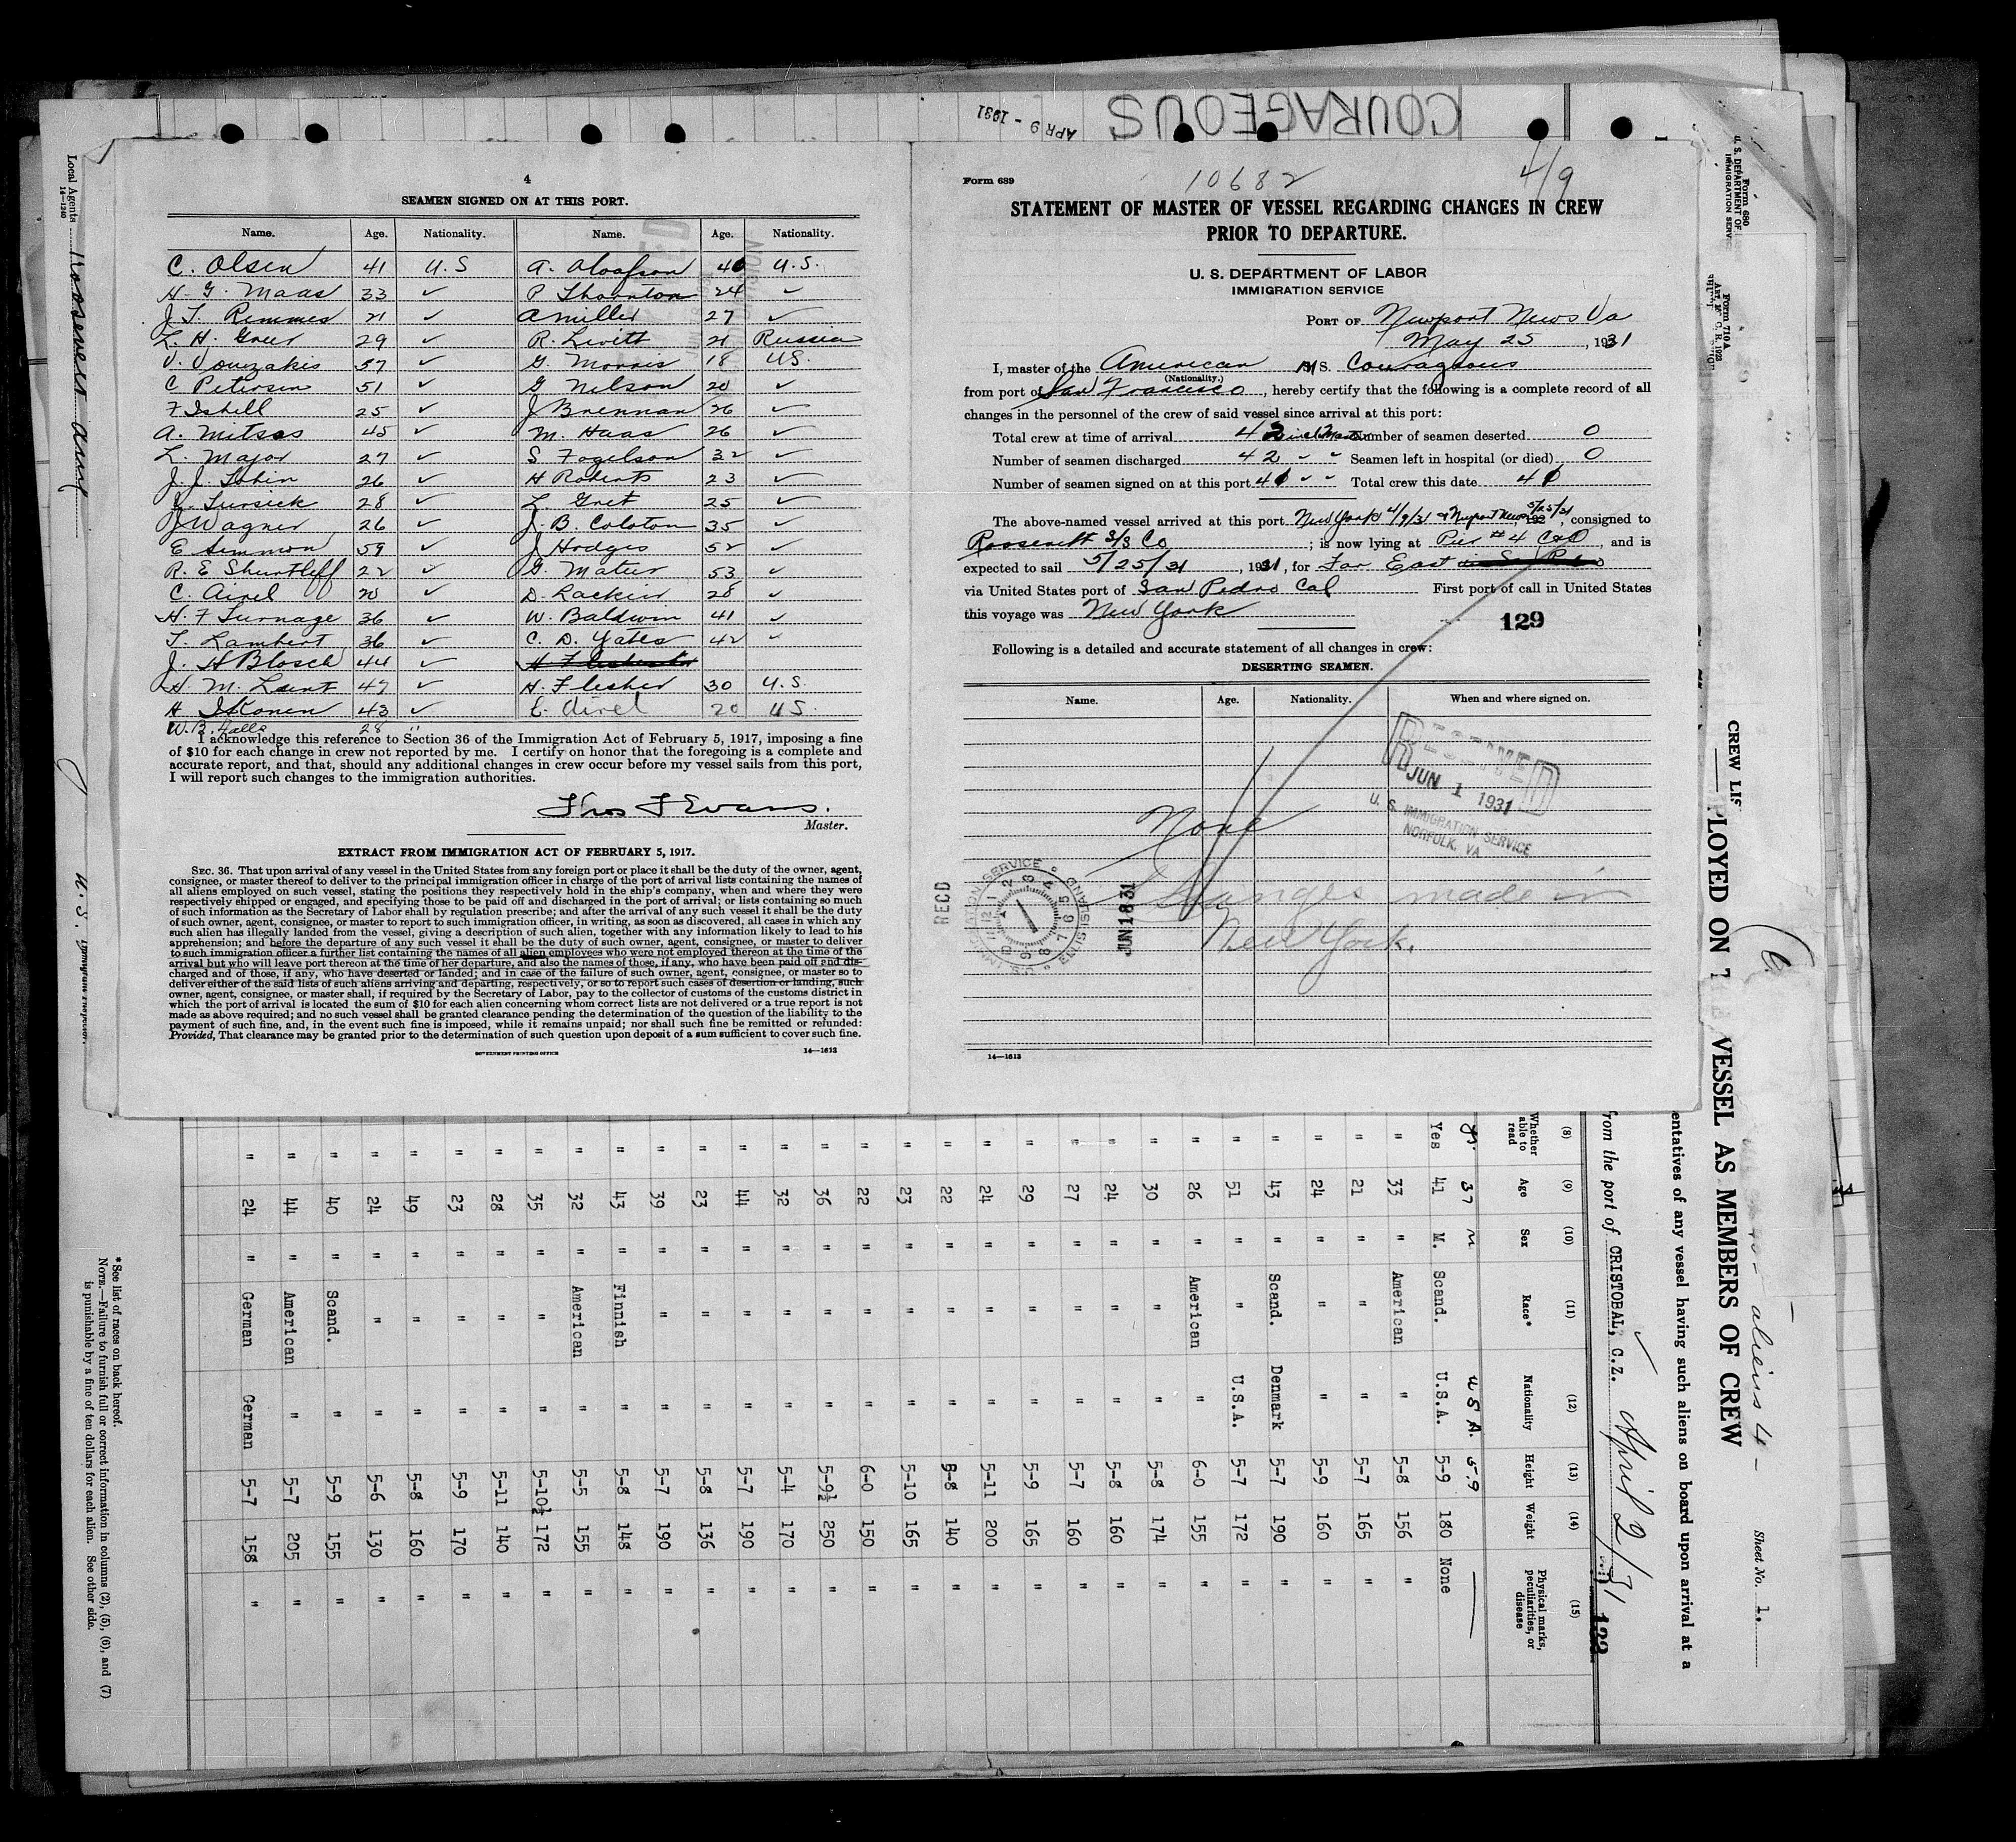 COURAGEOUS
APR 9 - 1931
4
SEAMEN SIGNED ON AT THIS PORT.
Name. Age. Nationality. Name. Age. Nationality.
C. Olsen 41 U.S A. Oloofson 40 U.S.
H. G. Maas 33 ✓ P. Thornton 24 ✓
J. T. Remmes 21 ✓ A Miller 27 ✓
L. H. Greer 29 ✓ R. Livitt 21 Russia
V. Vouzakis 57 ✓ G. Morris 18 US.
C Petersen 51 ✓ G Nelson 20 ✓
F Isbell 25 ✓ J Brennan 26 ✓
A. Mitsos 45 ✓ M. Haas 26 ✓
L. Major 27 ✓ S Fogelson 32 ✓
J. J. Tobin 26 ✓ H Roberts 23 ✓
Tursick 28 ✓ L. Gret 25 ✓
J Wagner 26 ✓ J. B. Coloton 35 ✓
E Semmon 59 ✓ J Hodges 52 ✓
R. E Shurtleff 22 ✓ G. Mateer 53 ✓
C. Airel 20 ✓ D. Lackin 28 ✓
H. F Turnage 36 ✓ W. Baldwin 41 ✓
T. Lambert 36 ✓ C. D. Yates 42 ✓
J. H Blosch 44 ✓
H. M. 47 ✓ H. Flesher 30 U.S.
H Ikonen 43 ✓ C. Airel 20 US.
W. B. Falls 28 "
I acknowledge this reference to Section 36 of the Immigration Act of February 5, 1917, imposing a fine
of $10 for each change in crew not reported by me. I certify on honor that the foregoing is a complete and
accurate report, and that, should any additional changes in crew occur before my vessel sails from this port,
I will report such changes to the immigration authorities.
Thos F Evans.
Master.
EXTRACT FROM IMMIGRATION ACT OF FEBRUARY 5, 1917.
SEC. 36. That upon arrival of any vessel in the United States from any foreign port or place it shall be the duty of the owner, agent,
consignee, or master thereof to deliver to the principal immigration officer in charge of the port of arrival lists containing the names of
all aliens employed on such vessel, stating the positions they respectively hold in the ship's company, when and where they were
respectively shipped or engaged, and specifying those to be paid off and discharged in the port of arrival; or lists containing so much
of such information as the Secretary of Labor shall by regulation prescribe; and after the arrival of any such vessel it shall be the duty
of such owner, agent, consignee, or master to report to such immigration officer, in writing, as soon as discovered, all cases in which any
such alien has illegally landed from the vessel, giving a description of such alien, together with any information likely to lead to his
apprehension; and before the departure of any such vessel it shall be the duty of such owner, agent, consignee, or master to deliver
to such immigration officer a further list containing the names of all alien employees who were not employed thereon at the time of the
arrival but who will leave port thereon at the time of her departure, and also the names of those, if any, who have been paid off and dis-
charged and of those, if any, who have deserted or landed; and in case of the failure of such owner, agent, consignee, or master so to
deliver either of the said lists of such aliens arriving and departing, respectively, or so to report such cases of desertion or landing, such
owner, agent, consignee, or master shall, if required by the Secretary of Labor, pay to the collector of customs of the customs district in
which the port of arrival is located the sum of $10 for each alien concerning whom correct lists are not delivered or a true report is not
made as above required; and no such vessel shall be granted clearance pending the determination of the question of the liability to the
payment of such fine, and, in the event such fine is imposed, while it remains unpaid; nor shall such fine be remitted or refunded:
Provided, That clearance may be granted prior to the determination of such question upon deposit of a sum sufficient to cover such fine.
GOVERNMENT PRINTING OFFICE 14—1613
Form 689
10682
4/9
STATEMENT OF MASTER OF VESSEL REGARDING CHANGES IN CREW
PRIOR TO DEPARTURE.
U. S. DEPARTMENT OF LABOR
IMMIGRATION SERVICE
PORT OF Newport News Va
May 25, 1931
I, master of the American M S. Courageous
(Nationality.)
from port of San Francisco, hereby certify that the following is a complete record of all
changes in the personnel of the crew of said vessel since arrival at this port:
Total crew at time of arrival 42 Number of seamen deserted 0
Number of seamen discharged 42 " " Seamen left in hospital (or died) 0
Number of seamen signed on at this port 41 " " Total crew this date 41
The above-named vessel arrived at this port New York 4/9/31 & Newport News 5/25/31, consigned to
Roosevelt S/S Co; is now lying at Pier #4 C&O, and is
expected to sail 5/25/31, 1931, for Far East
via United States port of San Pedro Cal First port of call in United States
this voyage was New York
129
Following is a detailed and accurate statement of all changes in crew:
DESERTING SEAMEN.
Name. Age. Nationality. When and where signed on.
RECEIVED
JUN 1 1931
U. S. IMMIGRATION SERVICE
NORFOLK, VA
None
Changes made in
New York.
RECD
JUN 18 31
14—1613
Local Agents Roosevelt Line
14—1240
U. S. Immigrant Inspector.
Form 680
U. S. DEPARTMENT OF
IMMIGRATION SERV
Sheet No. 1.
aliens 40-9
CREW LIS
PLOYED ON T VESSEL AS MEMBERS OF CREW
entatives of any vessel having such aliens on board upon arrival at a
from the port of CRISTOBAL, C.Z. April 2/31
(8) (9) (10) (11) (12) (13) (14) (15)
Whether able to read Age Sex Race* Nationality Height Weight Physical marks, peculiarities, or disease
37 M U S A. 5.9
Yes 41 M. Scand. U.S.A. 5-9 180 None
" 33 " American " 5-8 156 "
" 21 " " " 5-7 165 "
" 24 " " " 5-9 160 "
" 43 " Scand. Denmark 5-7 190 "
" 51 " " U.S.A. 5-7 172 "
" 26 " American " 6-0 155 "
" 30 " " " 5-8 174 "
" 24 " " " 5-8 160 "
" 27 " " " 5-7 160 "
" 29 " " " 5-9 165 "
" 24 " " " 5-11 200 "
" 22 " " " 5-8 140 "
" 23 " " " 5-10 165 "
" 22 " " " 6-0 150 "
" 36 " " " 5-9½ 250 "
" 32 " " " 5-4 170 "
" 44 " " " 5-7 190 "
" 23 " " " 5-8 136 "
" 39 " " " 5-7 190 "
" 43 " Finnish " 5-8 148 "
" 32 " American " 5-5 155 "
" 35 " " " 5-10½ 172 "
" 28 " " " 5-11 140 "
" 23 " " " 5-9 170 "
" 49 " " " 5-8 160 "
" 24 " " " 5-6 130 "
" 40 " Scand. " 5-9 155 "
" 44 " American " 5-7 205 "
" 24 " German German 5-7 158 "
*See list of races on back hereof.
NOTE.—Failure to furnish full or correct information in columns (2), (5), (6), and (7)
is punishable by a fine of ten dollars for each alien. See other side.